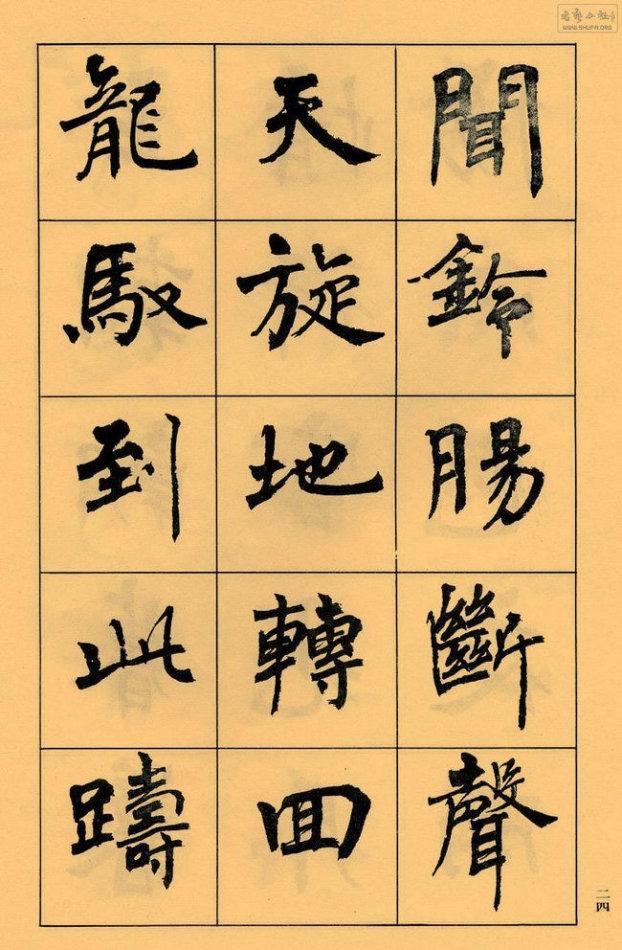 聞鈴腸斷聲
天旋地轉回
龍馭到此躊
二四
WWW.SHUFA.ORG